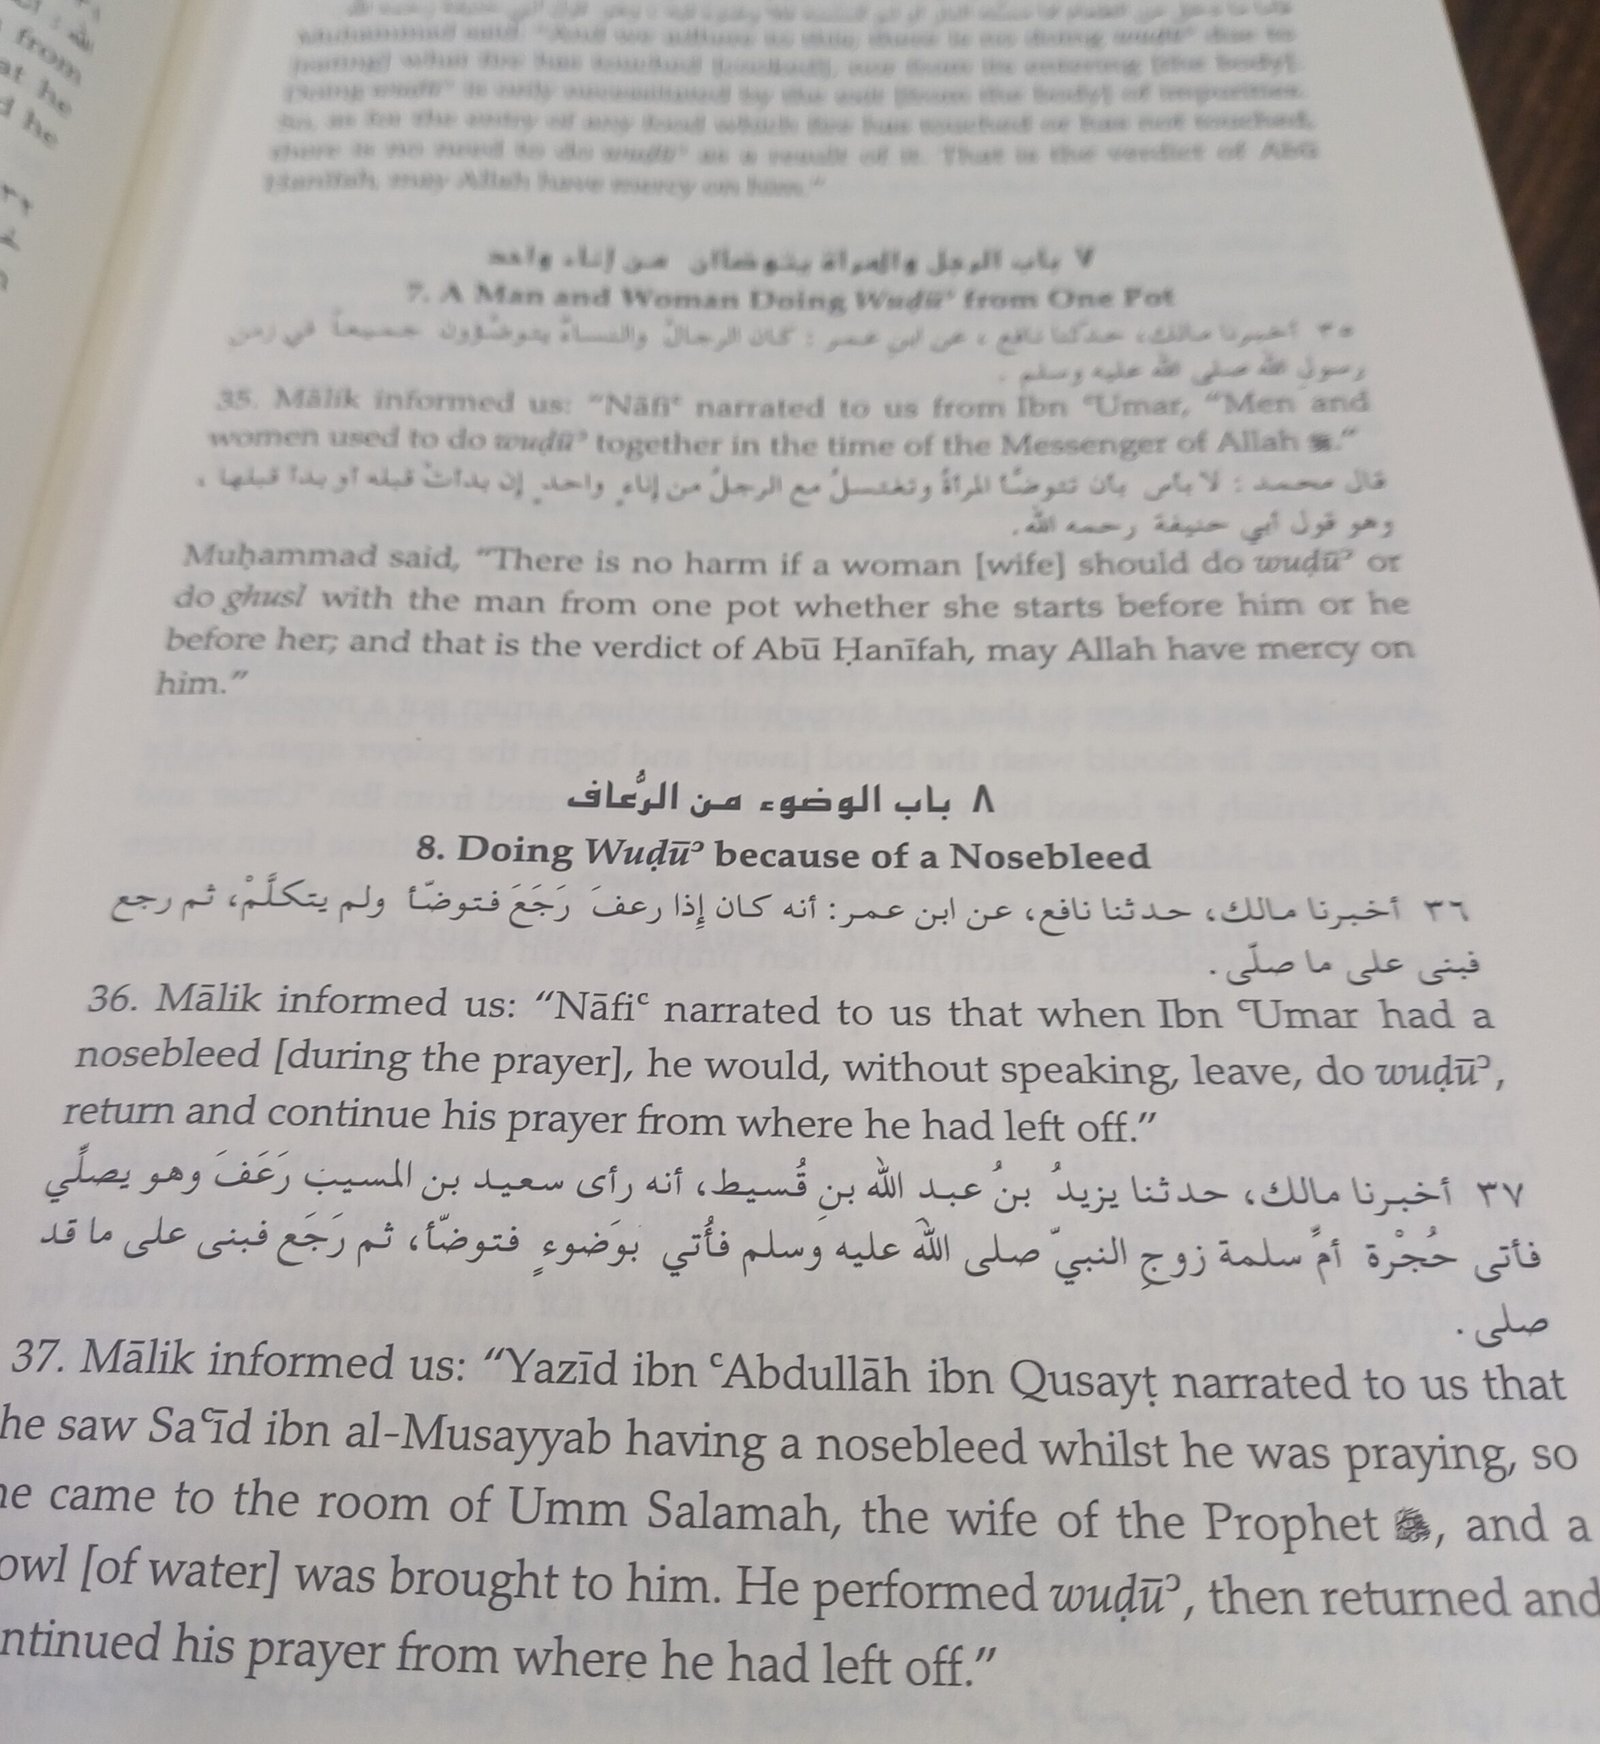 Muhammad said, "And we adhere to this; there is no doing wuḍūʾ due to
[eating] what fire has touched [cooked], nor from its entering [the body].
Doing wuḍūʾ is only necessitated by the exit [from the body] of impurities.
So, as for the entry of any food which fire has touched or has not touched,
there is no need to do wuḍūʾ as a result of it. That is the verdict of Abū
Ḥanīfah, may Allah have mercy on him."
٧ باب الرجل والمرأة يتوضآن من إناء واحد
7. A Man and Woman Doing Wuḍūʾ from One Pot
٣٥ أخبرنا مالك، حدثنا نافع، عن ابن عمر: كان الرجالُ والنساءُ يتوضّؤون جميعاً في زمن
رسولِ الله صلى الله عليه وسلم.
35. Mālik informed us: "Nāfiʿ narrated to us from Ibn ʿUmar, "Men and
women used to do wuḍūʾ together in the time of the Messenger of Allah ﷺ."
قال محمد: لا بأس بأن تتوضّأ المرأةُ وتغتسلُ مع الرجلُ من إناءٍ واحدٍ إن بدأتْ قبله أو بدأ قبلها،
وهو قول أبي حنيفة رحمه الله.
Muḥammad said, "There is no harm if a woman [wife] should do wuḍūʾ or
do ghusl with the man from one pot whether she starts before him or he
before her; and that is the verdict of Abū Ḥanīfah, may Allah have mercy on
him."
٨ باب الوضوء من الرُّعاف
8. Doing Wuḍūʾ because of a Nosebleed
٣٦ أخبرنا مالك، حدثنا نافع، عن ابن عمر: أنه كان إِذا رعفَ رَجَعَ فتوضّأ ولم يتكلَّمْ، ثم رجع
فبنى على ما صلّى.
36. Mālik informed us: "Nāfiʿ narrated to us that when Ibn ʿUmar had a
nosebleed [during the prayer], he would, without speaking, leave, do wuḍūʾ,
return and continue his prayer from where he had left off."
٣٧ أخبرنا مالك، حدثنا يزيدُ بنُ عبد الله بنِ قُسيط، أنه رأى سعيد بن المسيب رَعَفَ وهو يصلّي
فأتى حُجْرة أمِّ سلمة زوجِ النبيّ صلى الله عليه وسلم فأُتي بوَضوءٍ فتوضّأ، ثم رَجَع فبنى على ما قد
صلى.
37. Mālik informed us: "Yazīd ibn ʿAbdullāh ibn Qusayṭ narrated to us that
he saw Saʿīd ibn al-Musayyab having a nosebleed whilst he was praying, so
he came to the room of Umm Salamah, the wife of the Prophet ﷺ, and a
owl [of water] was brought to him. He performed wuḍūʾ, then returned and
ntinued his prayer from where he had left off."